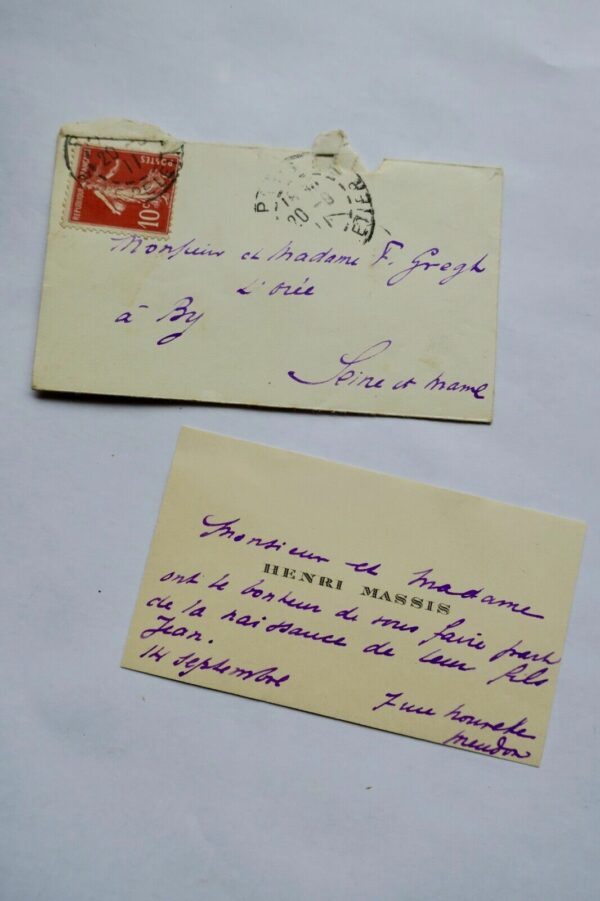 POSTES
10c
20
Monsieur et Madame F. Gregh
L'orée
à By
Seine et Marne
Monsieur et Madame
HENRI MASSIS
ont le bonheur de vous faire part
de la naissance de leur fils
Jean.
14 septembre
7 rue nouvelle
Meudon